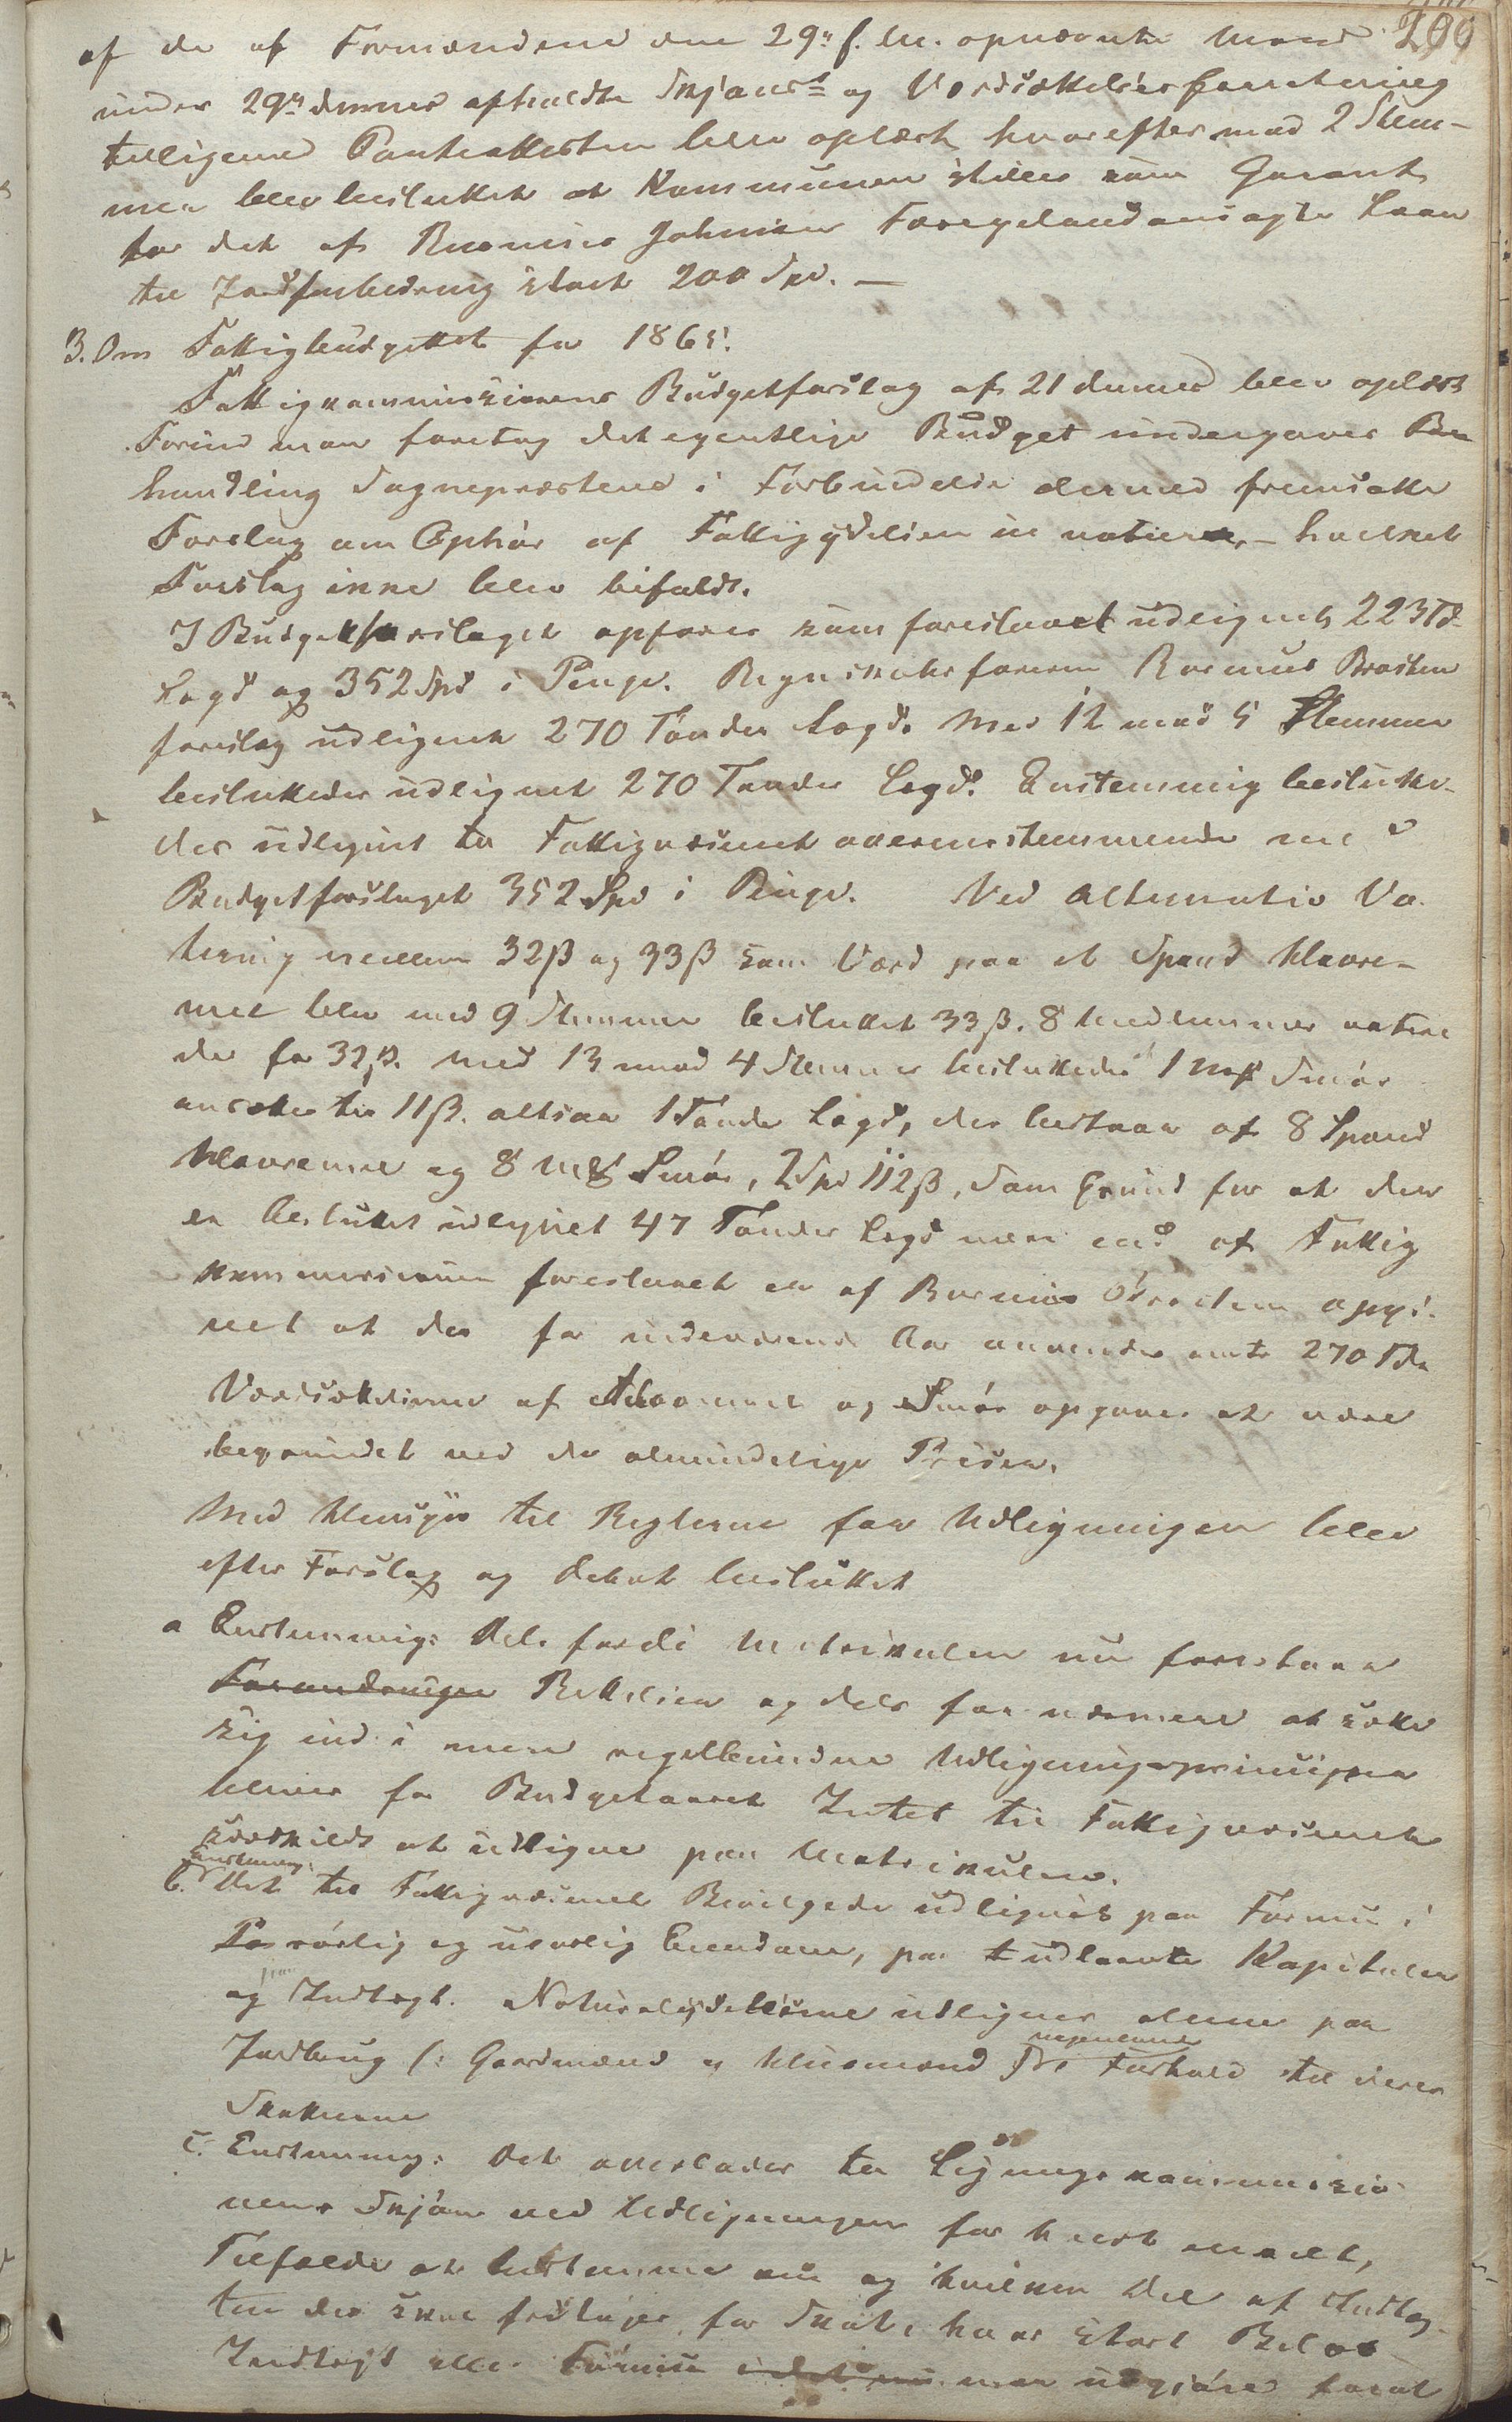 200
af de af Formændene den 29de f. M. opnævnte Mænd
under 29de dennes afholdte Skjøns- og Værdsættelsesforretning
tilligemed Pantattesten blev oplæst, hvorefter med 2 Stem-
mer blev besluttet at Kommunen stilles som Garant
for det af Rasmus Johnsen Færeland ansøgte Laan
til Jordforbedring stort 200 Spd. —
3. Om Fattigbudgettet for 1865.
Fattigkommissionens Budgetforslag af 21 dennes blev oplæst
Forind man foretog det egentlige Budget undergaves Be
handling Sognepræstens i Forbindelse dermed fremsatte
Forslag om Ophør af Fattigydelsen in natura, – hvilket
Forslag ikke blev bifaldt.
I Budgetforslaget opføres som foreslaaet udlignet 223 Td.
Lægd og 352 Spd i Penge. Regnskabsføreren Rasmus Braaten
foreslog udlignet 270 Tønder Lægd. Med 12 mod 5 Stemmer
besluttedes udlignet 270 Tønder Lægd. Enstemmig beslutte-
des udlignet til Fattigvæsenet overensstemmende med
Budgetforslaget 352 Spd i Penge. Ved alternativ Vo
tering mellem 32 β og 33 β som Værd paa et Spand Havre-
mel blev med 9 Stemmer besluttet 33 β. 8 Medlemmer votere
de for 32 β. Med 13 mod 4 Stemmer besluttedes 1 M℔ Smør
ansættes til 11 β. altsaa 1 Tønde Lægd, der bestaar af 8 Spand
Havremel og 8 M℔ Smør, 2 Spd 112 β. Som Grund for at der
er besluttet udlignet 47 Tønder Lægd mere end af Fattig
kommissionen foreslaaet er af Rasmus Braaten opgi-
vet at der for indeværende Aar anvendes omtr. 270 Tdr
Værdsættelserne af Havremel og Smør opgaves at være
begrundet ved de almindelige Priser.
Med Hensyn til Reglerne for Udligningen blev
efter Forslag og Debat besluttet
a Enstemmig: Dels fordi Matrikulen nu forestaaer
Forandringer Rettelser og dels for nærmere at sætte
sig ind i mere regelbundne Udligningsprinciper
bliver for Budgetaaret Intet til Fattigvæsenet
særskildt at udligne paa Matrikulen.
Enstemmig:
b. Det til Fattigvæsenet Bevilgede udlignes paa Formue i
Pa rørlig og urørlig Eiendom, paa udlaante Kapitaler
og paa Indtægt. Naturalydelserne udlignes alene paa
Jordbrug (: Gaardmænd og Husmænd) i Forhold til deres
Skatterne
c. Enstemmig: Det overlades til Ligningskommissio
nens Skjøn ved Udligningen for hvert enkelt
Tilfælde at bestemme om og hvilken Del af Indtæg
ten der skal fritages for Skat, hvor stort Beløb
Indtægt eller Formue man udgjøre forat